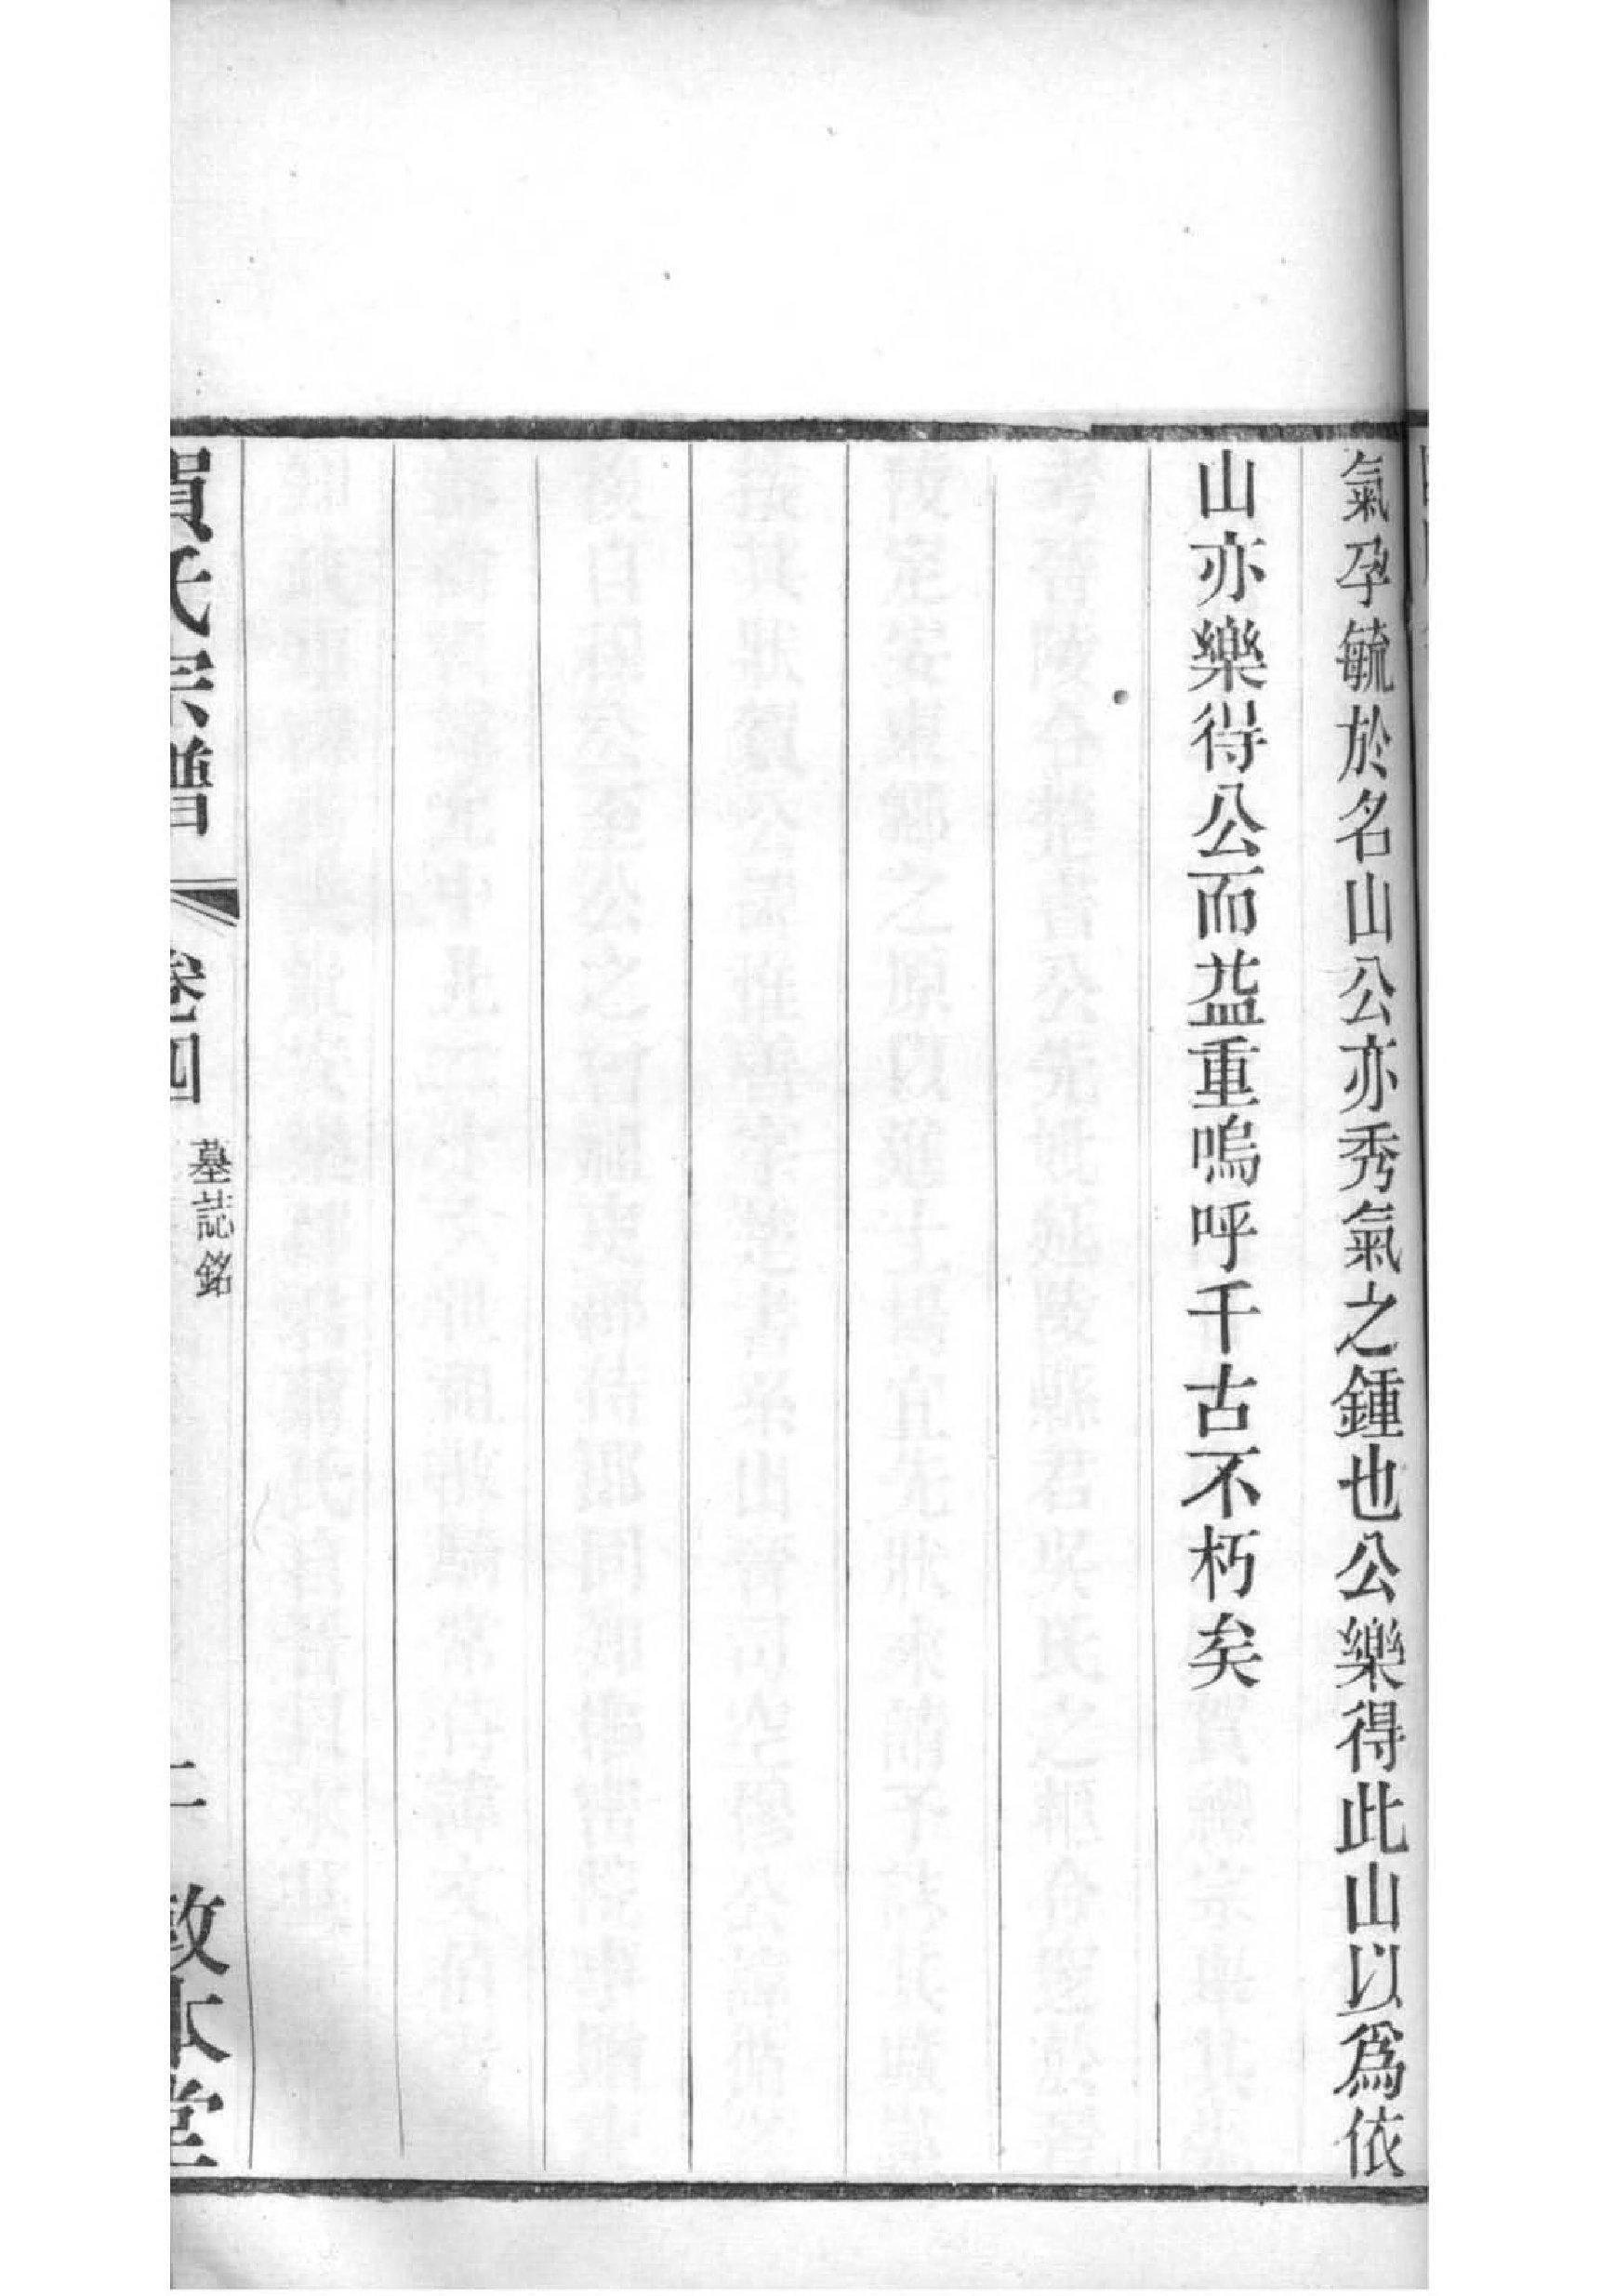 氣孕毓於名山公亦秀氣之鍾也公樂得此山以爲依
山亦樂得公而益重嗚呼千古不朽矣
賀氏宗譜
卷四
墓誌銘
二
敦本堂